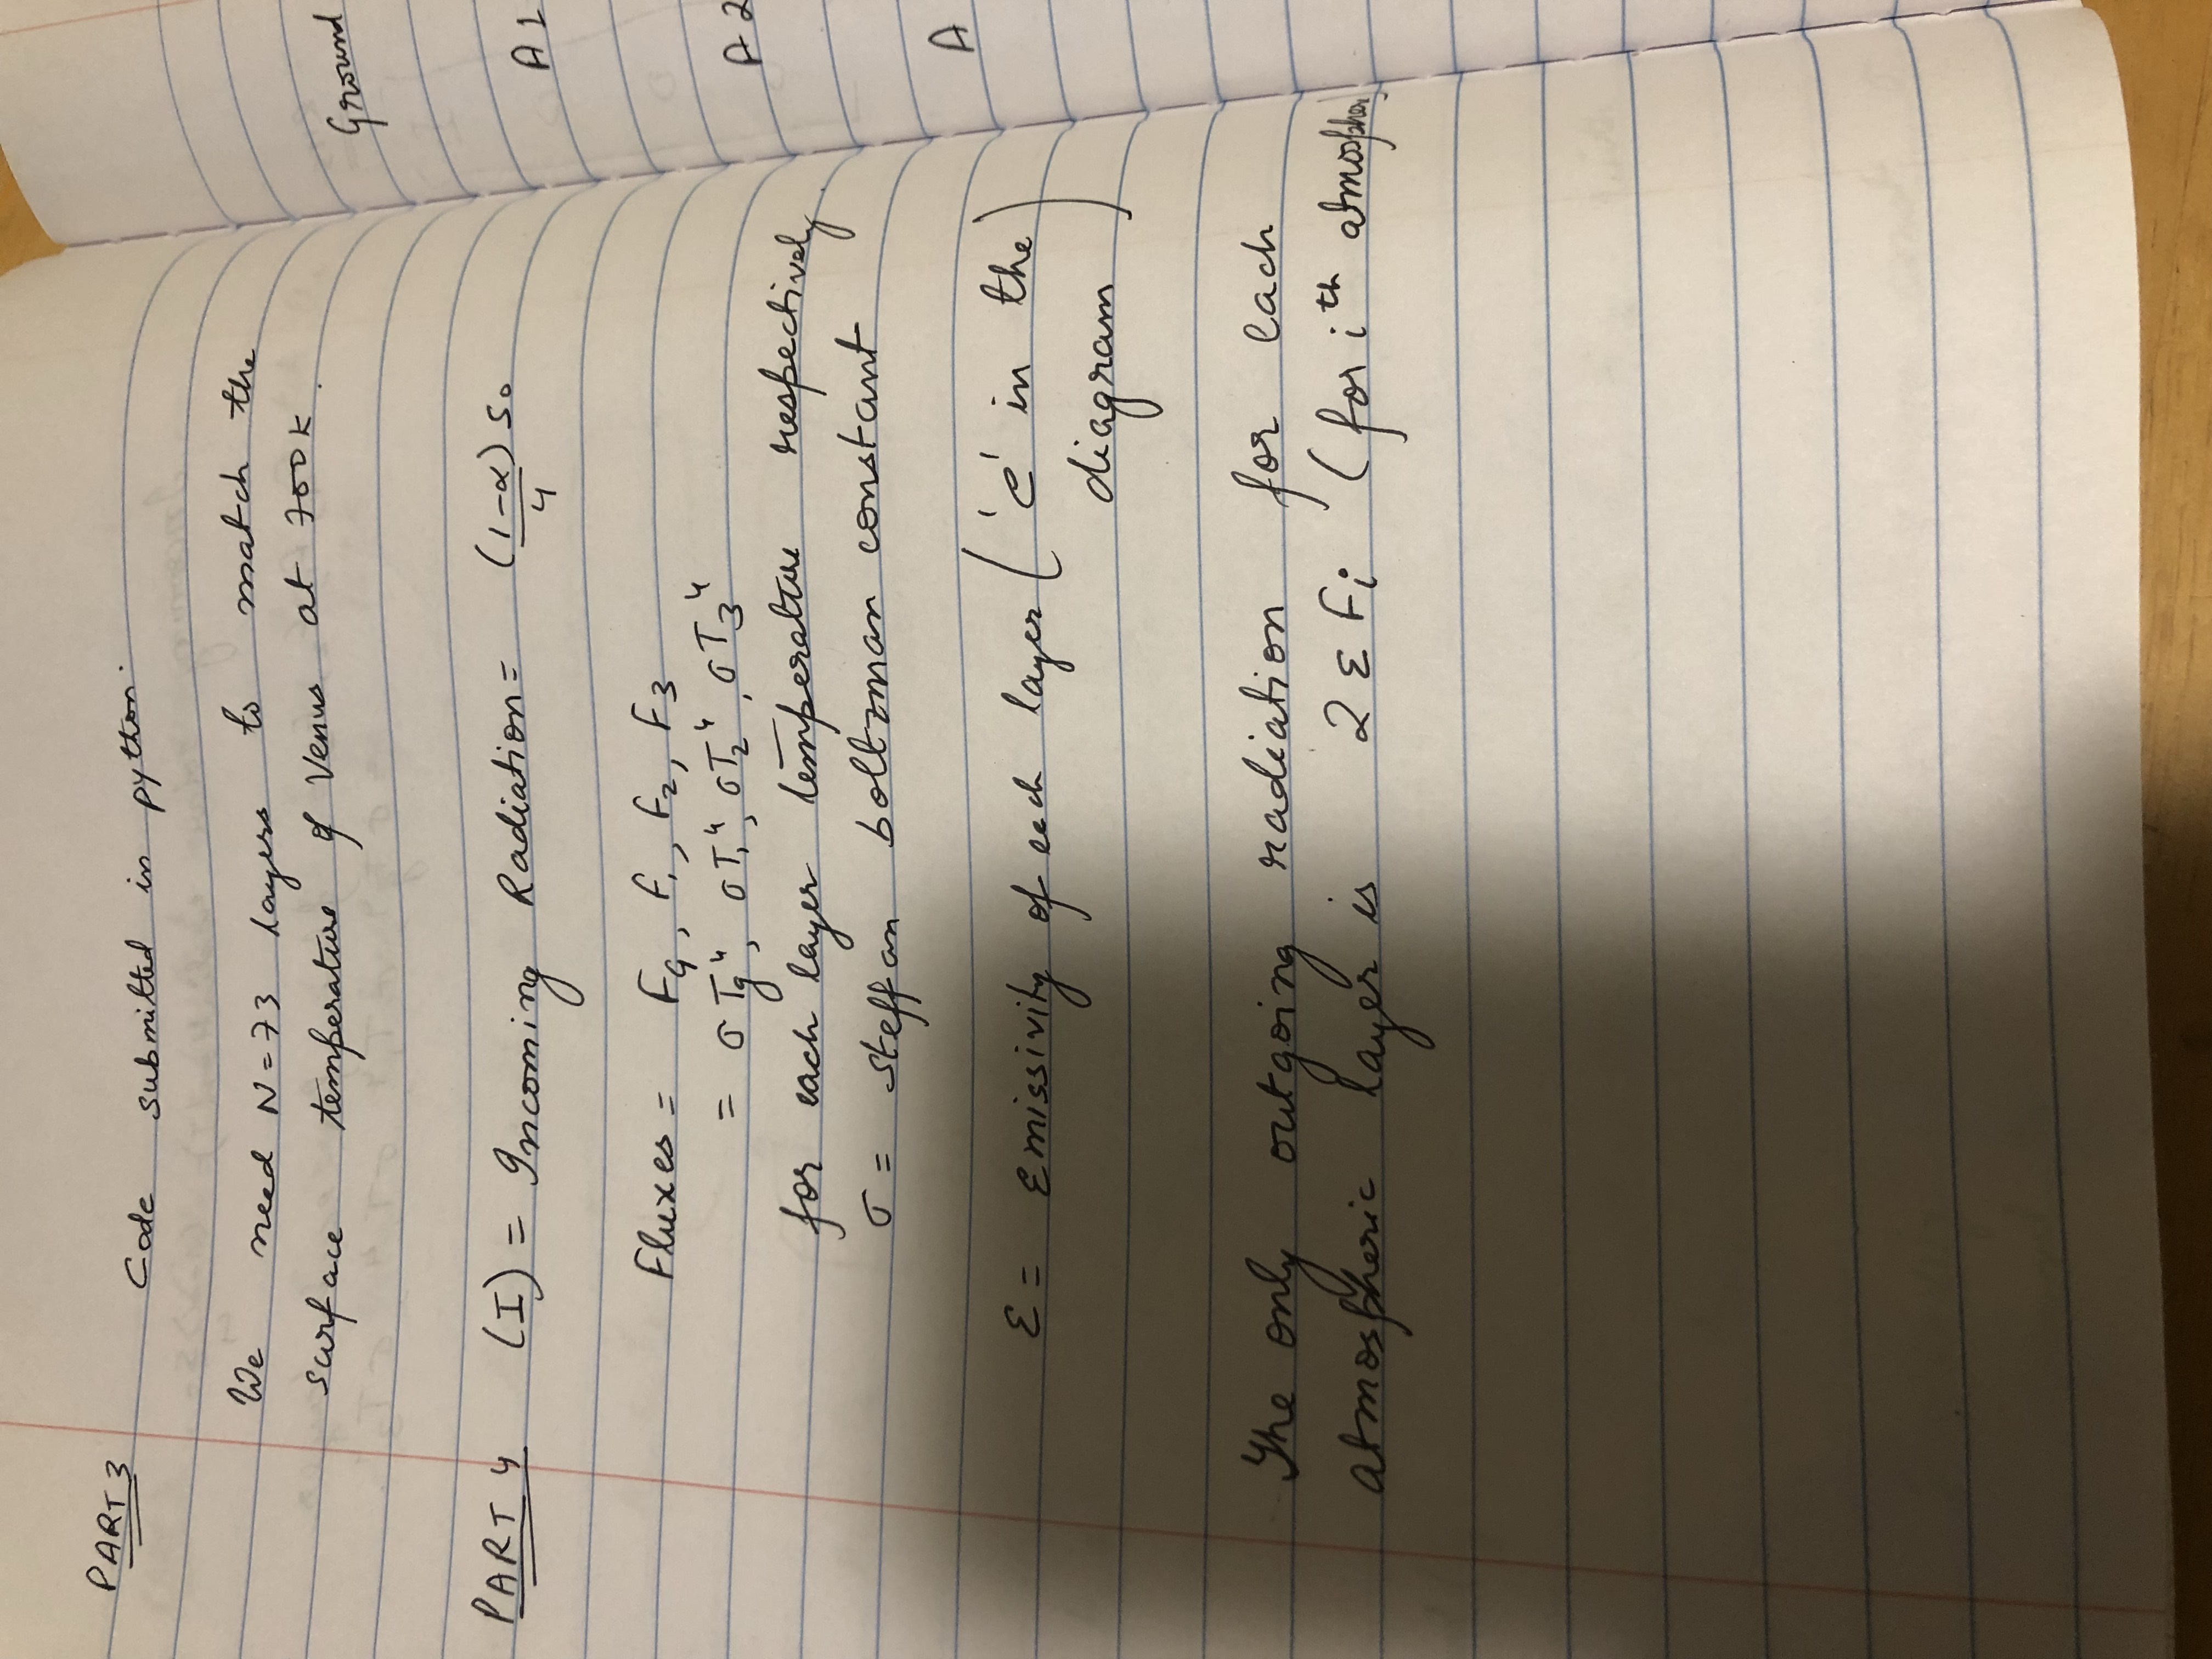 PART 3
Code submitted in python.
We need N=73 layers to match the
surface temperature of Venus at 700K.
PART 4 (I) = Incoming Radiation = (1-α) S₀ / 4
Fluxes = Fg, F₁, F₂, F₃
= σTg⁴, σT₁⁴, σT₂⁴, σT₃⁴
for each layer temperature respectively.
σ = steffan boltzman constant
ε = Emissivity of each layer ('e' in the
diagram)
The only outgoing radiation for each
atmospheric layer is 2εFᵢ (for iᵗʰ atmospher)
Ground
A1
A2
A